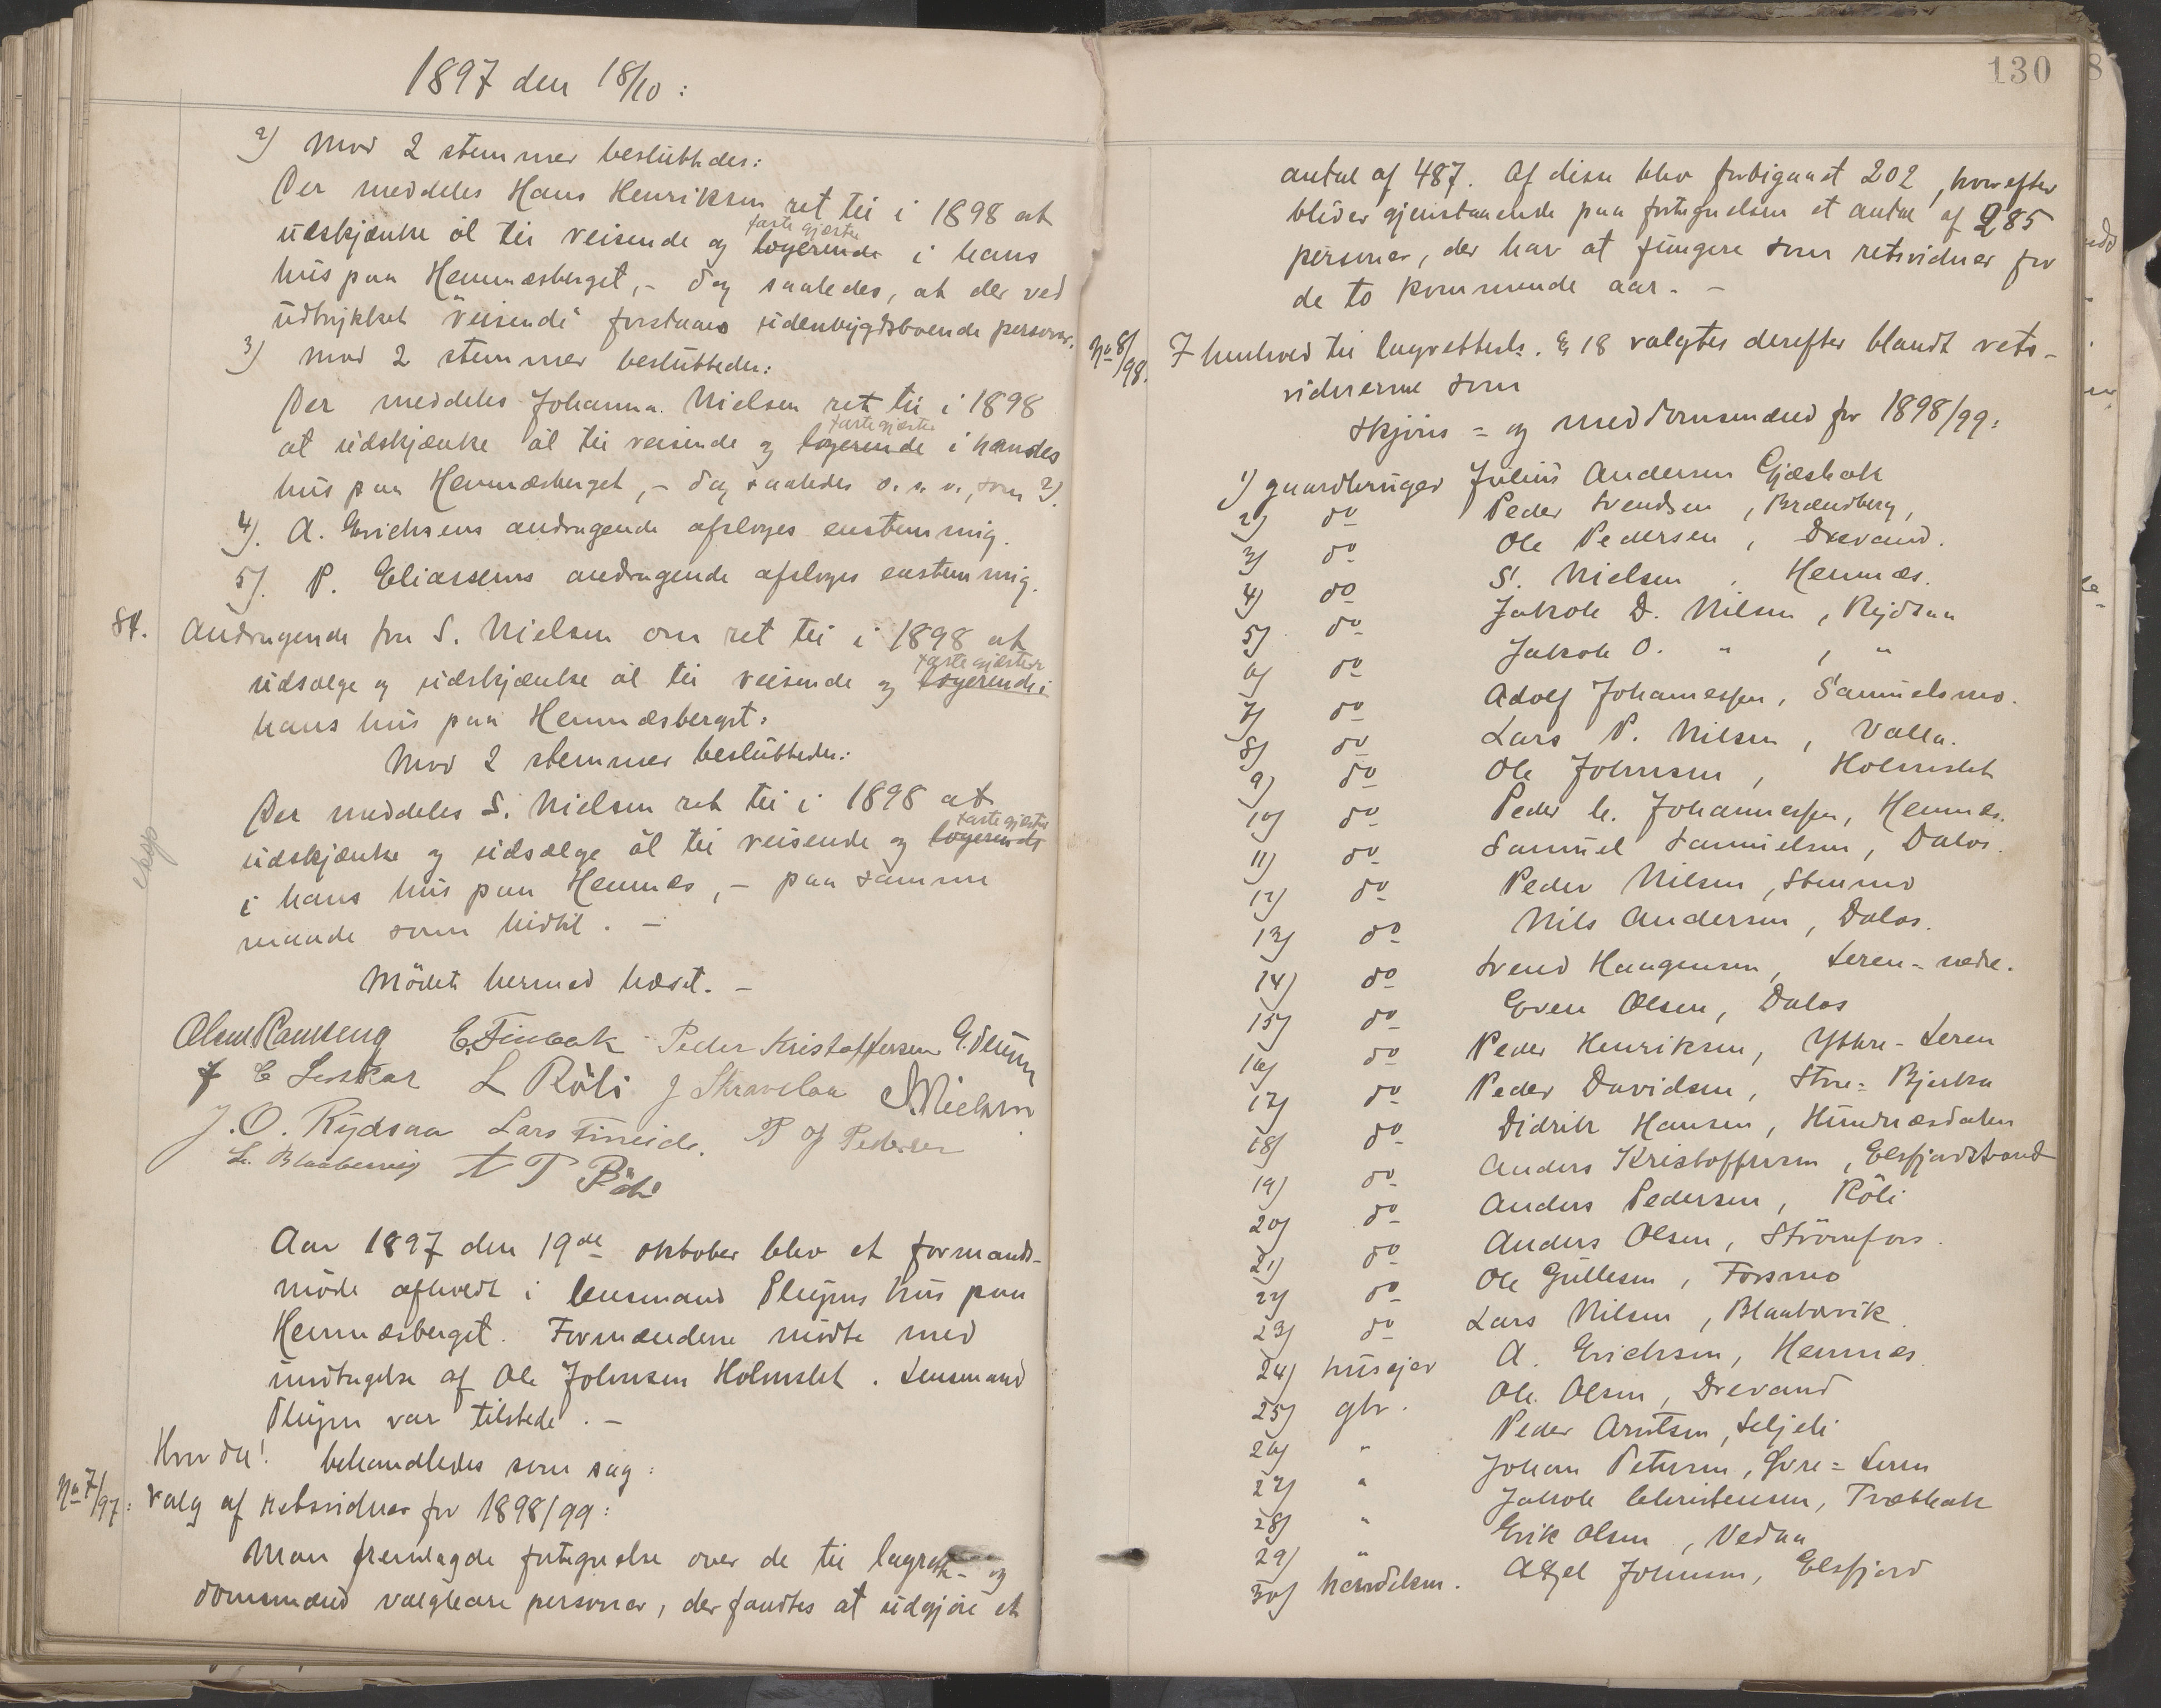 1897 den 18/10:
2) Mod 2 stemmer besluttedes:
Der meddeles Hans Henriksen ret til i 1898 at
faste gjæster
udskjænke öl til reisende og logerende i hans
hus paa Hemnæsberget, - dog saaledes, at der ved
udtrykket "reisende" forstaaes udenbygdsboende personer.
3) Mod 2 stemmer besluttedes:
Der meddeles Johanna Nielsen ret til i 1898
faste gjæster
at udskjænke öl til reisende og logerende i hendes
hus paa Hemnæsberget, - dog saaledes o. s. v., som 2).
4). A. Erichsens andragende afsloges enstemmig.
5). P. Eliassens andragende afsloges enstemmig.
84. Andragende fra S. Nielsen om ret til i 1898 at
faste gjæster
udsælge og udskjænke öl til reisende og logerende i
hans hus paa Hemnæsberget:
Mod 2 stemmer besluttedes:
Der meddeles S. Nielsen ret til i 1898 at
faste gjæster
udskjænke og udsælge öl til reisende og logerende
i hans hus paa Hemnes, - paa samme
maade som hidtil. -
exsp
Mödet hermed hævet. -
Olsen Ranseng E. Finbak Peder Kristoffersen G. Pleym
J C Leskar L Röli J Stravelaa S. Nielsen
J. O. Rydsaa Lars Fineide. P Pedersen
L. Blaabærvig A P Röli
Aar 1897 den 19de oktober blev et formands-
möde afholdt i lensmand Pleyms hus paa
Hemnæsberget. Formændene mödte med
undtagelse af Ole Johnsen Holmslet. Lensmand
Pleym var tilstede. -
Hvor da! behandledes som sag:
No 7/97: Valg af retsvidner for 1898/99:
Man fremlagde fortegnelse over de til lagret- og
domsmænd valgbare personer, der fandtes at udgjøre et
130
antal af 487. Af disse blev forbigaaet 202, hvorefter
bliver gjenstaaende paa fortegnelsen et antal af 285
personer, der har at fungere som retsvidner for
de to kommende aar. -
No 8/98. I henhold til lagrettesl. § 18 valgtes derefter blandt rets-
vidnerne som
skjøns- og meddomsmænd for 1898/99:
1) gaardbruger Julius Andersen Gjæsbak
2) do Peder Svendsen, Brændberg,
3) do Ole Pedersen, Drevand.
4) do S. Nielsen, Hemnæs.
5) do Jakob D. Nilsen, Rydsaa
6) do Jakob O. " , "
7) do Adolf Johannessen, Samuelsmo.
8) do Lars P. Nilsen, Valla.
9) do Ole Johnsen, Holmslet
10) do Peder C. Johannessen, Hemnes.
11) do Samuel Samuelsen, Dalos.
12) do Peder Nilsen, Stenmo
13) do Nils Andersen, Dalos.
14) do Svend Haagensen, Leren-nedre.
15) do Even Olsen, Dalos
16) do Peder Henriksen, Yttre-Leren
17) do Peder Davidsen, Store-Bjerka
18) do Didrik Hansen, Hundnæsdalen
19) do Anders Kristoffersen, Elsfjordstrand
20) do Anders Pedersen, Röli
21) do Anders Olsen, Strömfors
22) do Ole Gullesen, Forsmo
23) do Lars Nilsen, Blaabærvik.
24) husejer A. Erichsen, Hemnes.
25) gbr. Ole Olsen, Drevand
26) " Peder Arntsen, Seljeli
27) " Johan Petersen, Övre-Leren
28) " Jakob Christensen, Trætbak
29) " Erik Olsen, Vedaa
30) handelsm. Axel Johnsen, Elsfjord